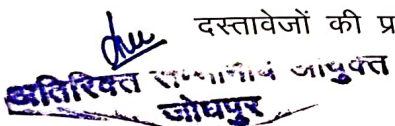 दस्तावेजों की प्र
अतिरिक्त सम्भागीय आयुक्त
जोधपुर